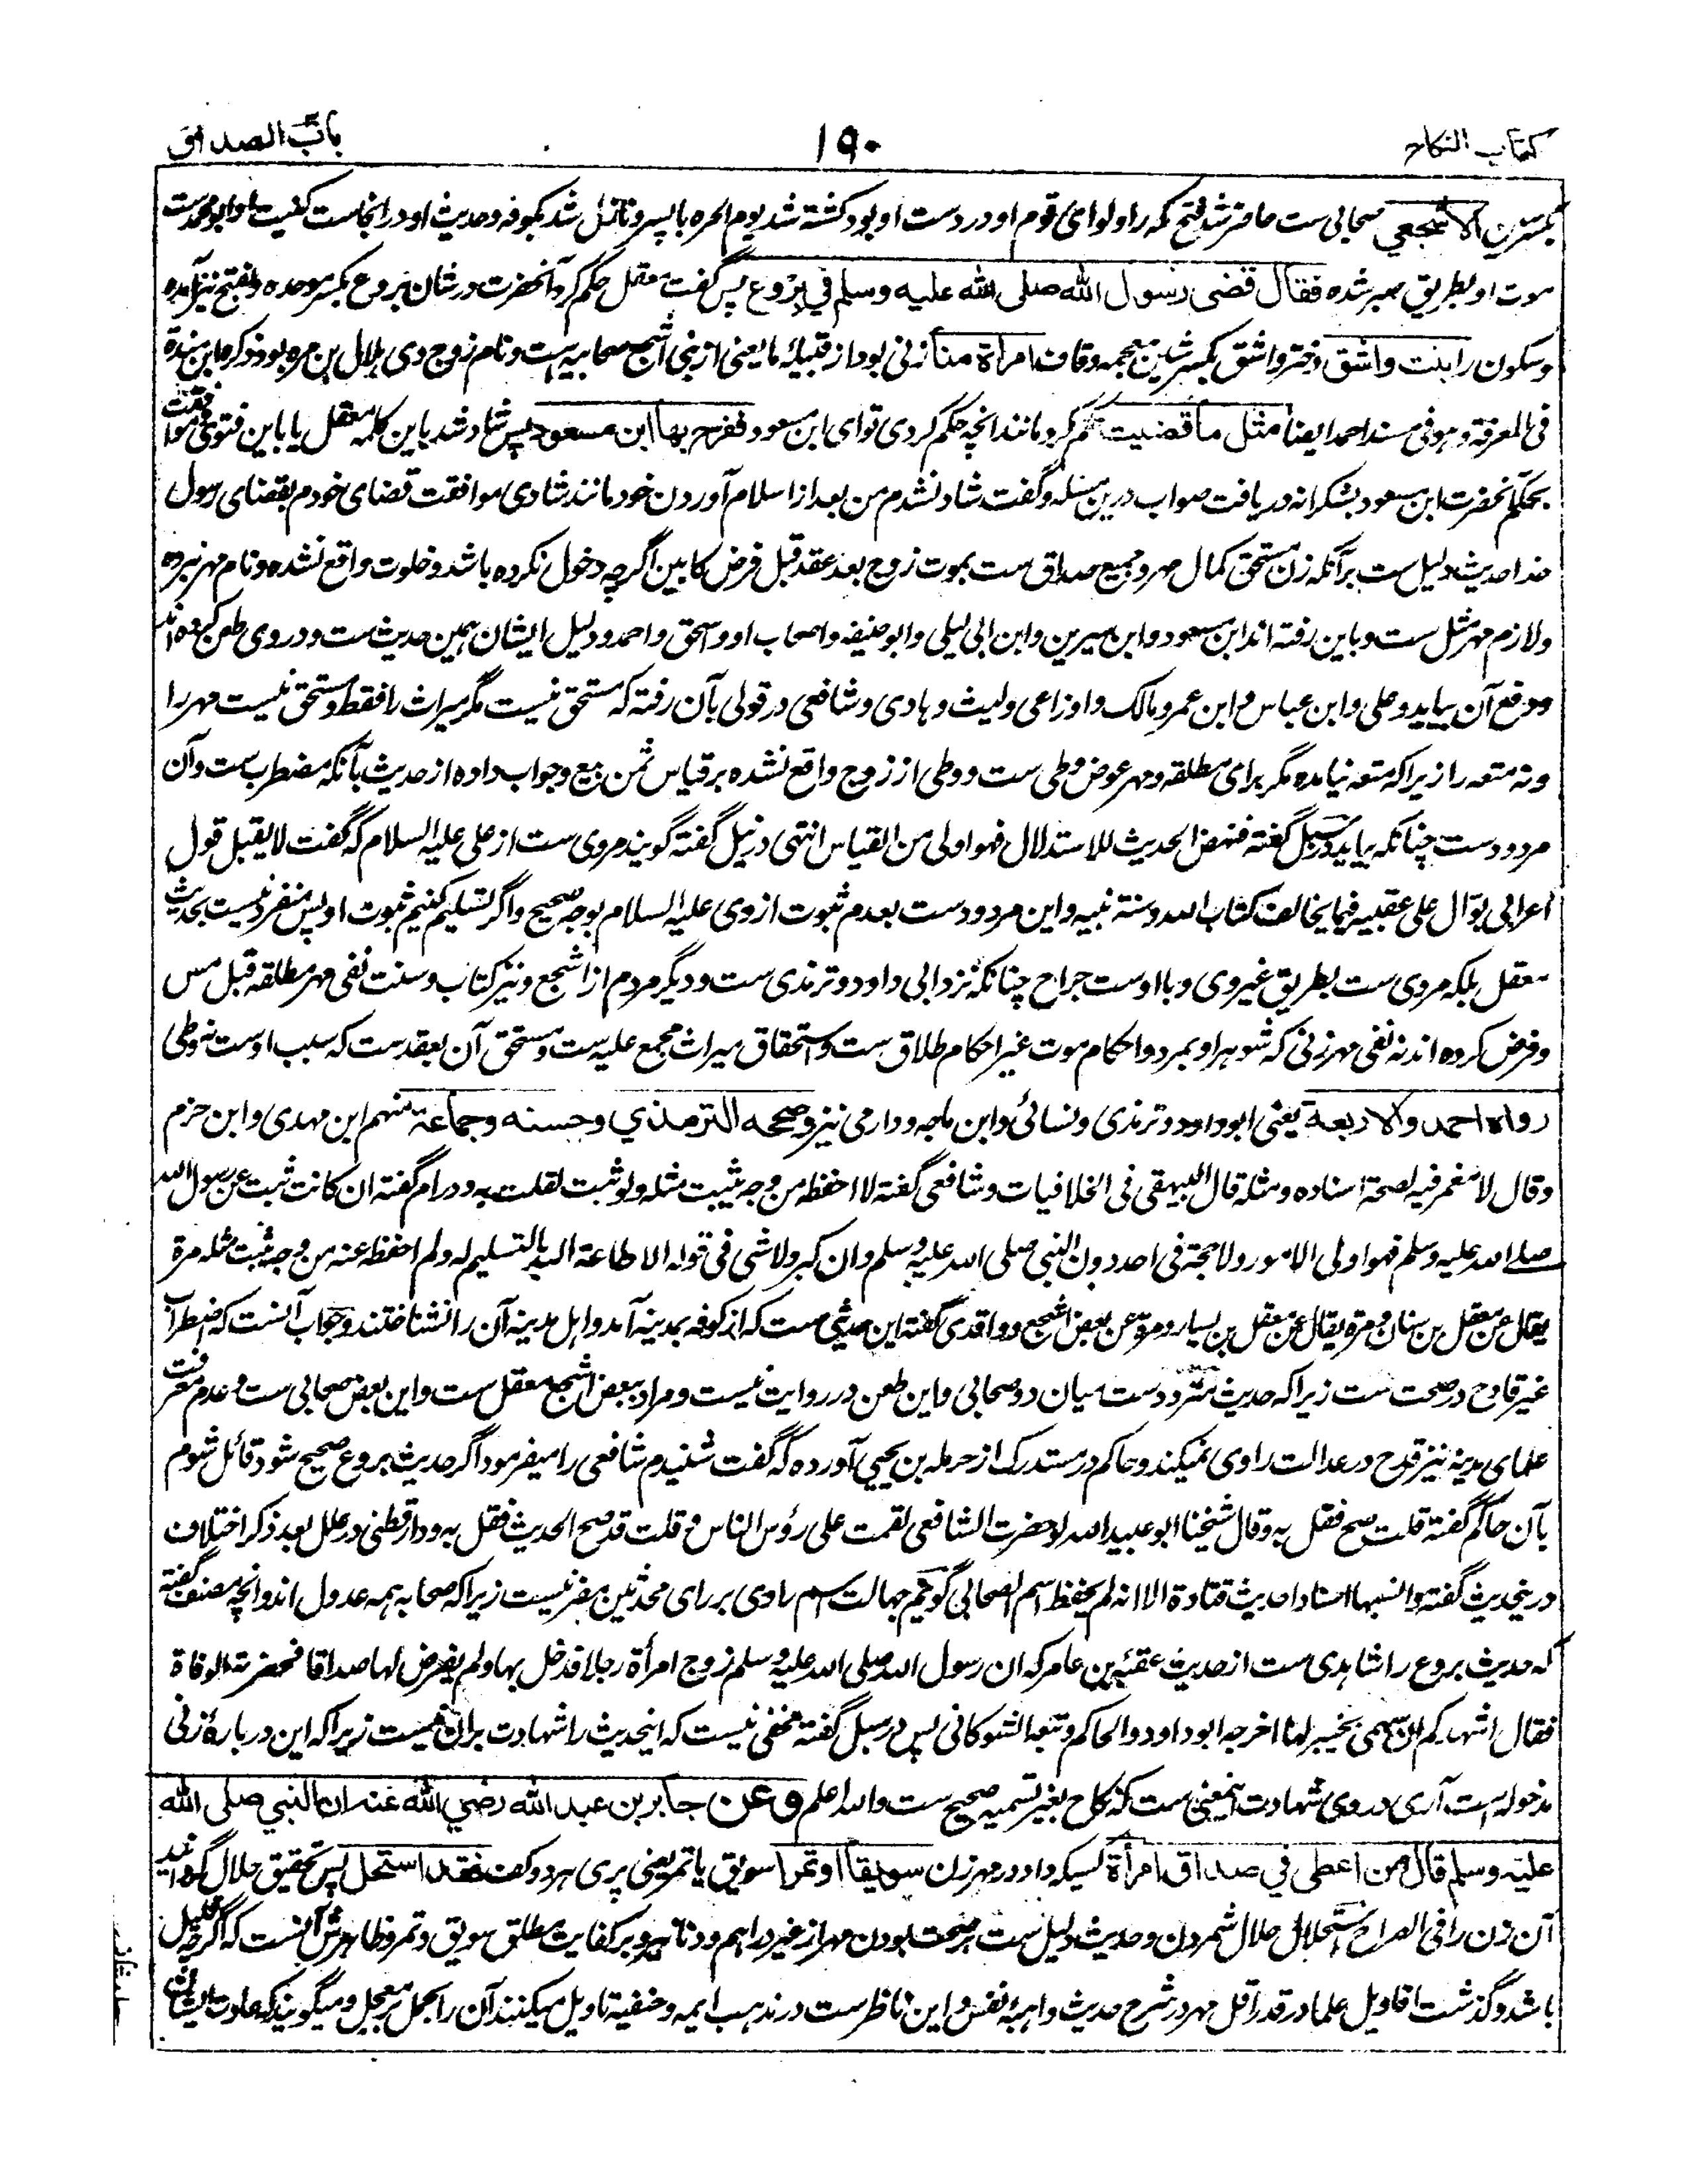 کتاب النکاح
۱۹۰
باب الصداق
بکسر سین الاشجعي صحابی ست حاضر شد فتح مکه را و لوای قوم او در دست او بود کشته شد یوم الحره با پسر و نازل شد بکوفه و حدیث او در آنجاست کنیت او ابو محمد ست
موت او بطریق صبر شده فقال قضى رسول الله صلى الله عليه وسلم في بروع پس گفت معقل حکم کرد آنحضرت در شان بروع بکسر موحده و بفتح نیز آمده
و سکون را بنت واشق دختر واشق بکسر شین معجمه و قاف امرأة منا زنی بود از قبیلهٔ ما یعنی از بنی اشجع صحابیه است و نام زوج وی هلال بن مره بود ذکره ابن منده
فی المعرفة و هو فی مسند احمد ایضا مثل ما قضيت حکم کرد مانند انچه حکم کردی تو ای ابن مسعود ففرح بها ابن مسعود پس شاد شد باین کلمه معقل یا باین فتوی موافقت
بحکم آنحضرت ابن مسعود بشکرانه دریافت صواب درین مسئله و گفت شاد نشدم من بعد از اسلام آوردن خود مانند شادی موافقت قضای خودم بقضای رسول
خدا حدیث دلیل ست بر آنکه زن مستحق کمال مهر و جمیع صداق ست بموت زوج بعد عقد قبل فرض کابین اگرچه دخول نکرده باشد و خلوت واقع نشده و نام مهر نبرده
و لازم مهر مثل ست و باین رفته اند ابن مسعود و ابن سیرین و ابن ابی لیلی و ابو حنیفه و اصحاب او و اسحق و احمد و دلیل ایشان همین حدیث ست و در وی طعن کرده اند
و دفع آن بیاید و علی و ابن عباس و ابن عمر و مالک و اوزاعی و لیث و هادی و شافعی در قولی بآن رفته که مستحق نیست مگر میراث را فقط و مستحق نیست مهر را
و نه متعه را زیرا که متعه نیامده مگر برای مطلقه و مهر عوض وطی ست و وطی از زوج واقع نشده بر قیاس ثمن بیع و جواب داده از حدیث بآنکه مضطرب ست و آن
مردود ست چنانکه بیاید در سبل گفته فنهض الحدیث للاستدلال فهو اولی من القیاس انتهی در نیل گفته گویند مروی ست از علی علیه السلام که گفت لا یقبل قول
اعرابی بوال علی عقبیه فیما یخالف کتاب الله و سنة نبیه و این مردود ست بعدم ثبوت از وی علیه السلام بوجه صحیح و اگر تسلیم کنیم ثبوت او پس منفرد نیست بحدیث
معقل بلکه مروی ست بطریق غیر وی و با اوست جراح چنانکه نزد ابی داود و ترمذی ست و دیگر مردم از اشجع و نیز کتاب و سنت نفی مهر مطلقه قبل مس
و فرض کرده اند نه نفی مهر زنی که شوهر او بمرد و احکام موت غیر احکام طلاق ست و استحقاق میراث مجمع علیه ست و مستحق آن بعقد ست که سبب اوست نه وطی
رواه احمد والاربعة یعنی ابو داود و ترمذی و نسائی و ابن ماجه و دارمی نیز وصححه الترمذي وحسنه وجماعة منهم ابن مهدی و ابن حزم
و قال لا مغمز فیه لصحة اسناده و مثله قال البیهقی فی الخلافیات و شافعی گفته لا احفظه من وجه یثبت مثله و لو ثبت لقلت به و در ام گفته ان کانت ثبت عن رسول الله
صلے الله علیه و سلم فهو اولی الامور و لا حجة فی احد دون النبی صلی الله علیه و سلم و ان کبر و لا شی فی قوله الا طاعة الله بالتسلیم له و لم احفظ عنه من وجه یثبت مثله مرة
یقال عن معقل بن سنان و مرة یقال عن معقل بن یسار و مرة عن بعض اشجع و واقدی گفته این حدیثی ست که از کوفه بمدینه آمد و اهل مدینه آن را نشناختند و جواب آنست که اضطراب
غیر قادح در صحت ست زیرا که حدیث متردد ست میان دو صحابی و این طعن در روایت نیست و مراد ببعض اشجع معقل ست و این بعض صحابی ست و عدم معرفت
علمای مدینه نیز قدح در عدالت راوی نمیکند و حاکم در مستدرک از حرمله بن یحیی آورده که گفت شنیدم شافعی را میفرمود اگر حدیث بروع صحیح شود قائل شوم
بآن حاکم گفته قلت صح فقل به و قال شیخنا ابو عبید الله لو حضرت الشافعی لقمت علی رؤس الناس و قلت قد صح الحدیث فقل به و دارقطنی در علل بعد ذکر اختلاف
درین حدیث گفته و انسبها اسنادا حدیث قتادة الا انه لم یحفظ اسم الصحابی گویم جهالت اسم راوی بر رای محدثین مضر نیست زیرا که صحابه همه عدول اند و انچه مصنف گفته
که حدیث بروع را شاهدی ست از حدیث عقبه بن عامر که ان رسول الله صلی الله علیه و سلم زوج امرأة رجلا فدخل بها و لم یفرض لها صداقا فحضرته الوفاة
فقال اشهدکم ان سهمی بخیبر لها اخرجه ابو داود و الحاکم و تبعه الشوکانی پس در سبل گفته مخفی نیست که این حدیث را شهادت بر آن نیست زیرا که این در بارهٔ زنی
مدخوله است آری در وی شهادت بمعنی ست که نکاح بغیر تسمیه صحیح ست والله اعلم وعن جابر بن عبد الله رضي الله عنه ان النبي صلى الله
عليه وسلم قال من اعطى في صداق امرأة کسیکه داد در مهر زن سويقا او تمرا سویق یا تمر یعنی پری هر دو کف فقد استحل پس تحقیق حلال گردانید
آن زن را فی الصراح استحلال حلال شمردن و حدیث دلیل ست بر صحت بودن مهر از غیر دراهم و دنانیر و بر کفایت مطلق سویق و تمر و ظاهرش آنست که اگرچه قلیل
باشد و گذشت اقاویل علما در قدر اقل مهر در شرح حدیث واهبهٔ نفس و این ناظر ست در مذهب ایمه و حنفیه تاویل میکنند آن را بحمل بر معجل و میگویند که عادت ایشان